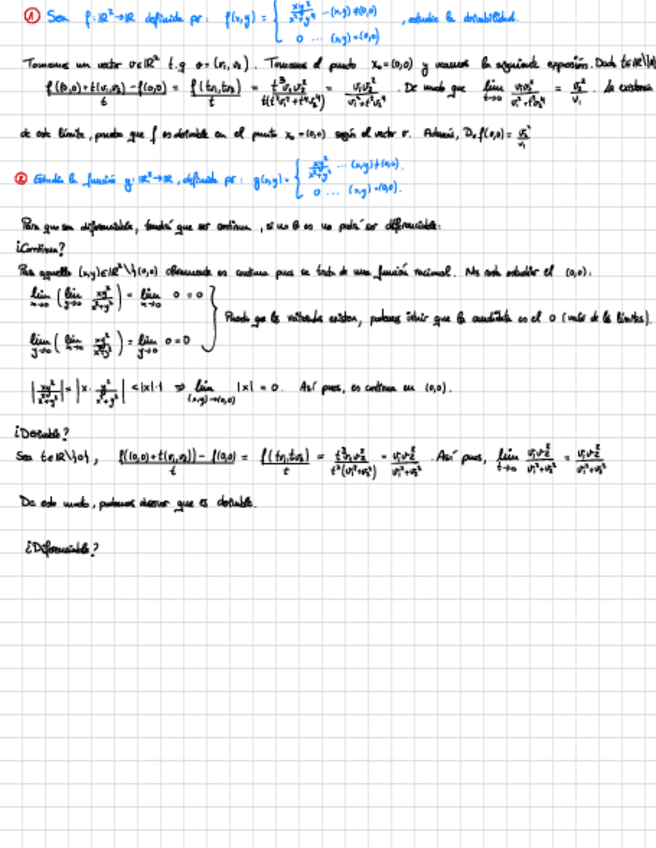 ① Sea f: ℝ²→ℝ definida por: f(x,y) = { xy²/(x²+y⁴) ... (x,y)≠(0,0) ; 0 ... (x,y)=(0,0) , estudia la derivabilidad.
Tomemos un vector v∈ℝ² t.q v=(v₁,v₂). Tomemos el punto x₀=(0,0) y veamos la siguiente expresión. Dado t∈ℝ\{0}
(f((0,0)+t(v₁,v₂))-f(0,0))/t = f(tv₁,tv₂)/t = t³v₁v₂²/(t(t²v₁²+t⁴v₂⁴)) = v₁v₂²/(v₁²+t²v₂⁴). De modo que lim t→0 v₁v₂²/(v₁²+t²v₂⁴) = v₂²/v₁. La existencia
de este límite, prueba que f es derivable en el punto x₀=(0,0) según el vector v. Además, Dᵥf(0,0) = v₂²/v₁
② Estudia la función g: ℝ²→ℝ, definida por: g(x,y) = { xy²/(x²+y²) ... (x,y)≠(0,0). ; 0 ... (x,y)=(0,0).
Para que sea diferenciable, tendrá que ser continua, si no lo es no podrá ser diferenciable.
¿Continua?
Para aquellos (x,y)∈ℝ²\{(0,0) es continua pues se trata de una función racional. Nos resta estudiar el (0,0).
lim x→0 ( lim y→0 xy²/(x²+y²) ) = lim x→0 0 = 0
Puesto que los reiterados existen, podemos intuir que el candidato es el 0 (valor de los límites).
lim y→0 ( lim x→0 xy²/(x²+y²) ) = lim y→0 0 = 0
|xy²/(x²+y²)| = |x · y²/(x²+y²)| < |x|·1 ⇒ lim (x,y)→(0,0) |x| = 0. Así pues, es continua en (0,0).
¿Derivable?
Sea t∈ℝ\{0}, (f((0,0)+t(v₁,v₂))-f(0,0))/t = f(tv₁,tv₂)/t = t³v₁v₂²/(t³(v₁²+v₂²)) = v₁v₂²/(v₁²+v₂²). Así pues, lim t→0 v₁v₂²/(v₁²+v₂²) = v₁v₂²/(v₁²+v₂²)
De este modo, podemos que es derivable.
¿Diferenciable?